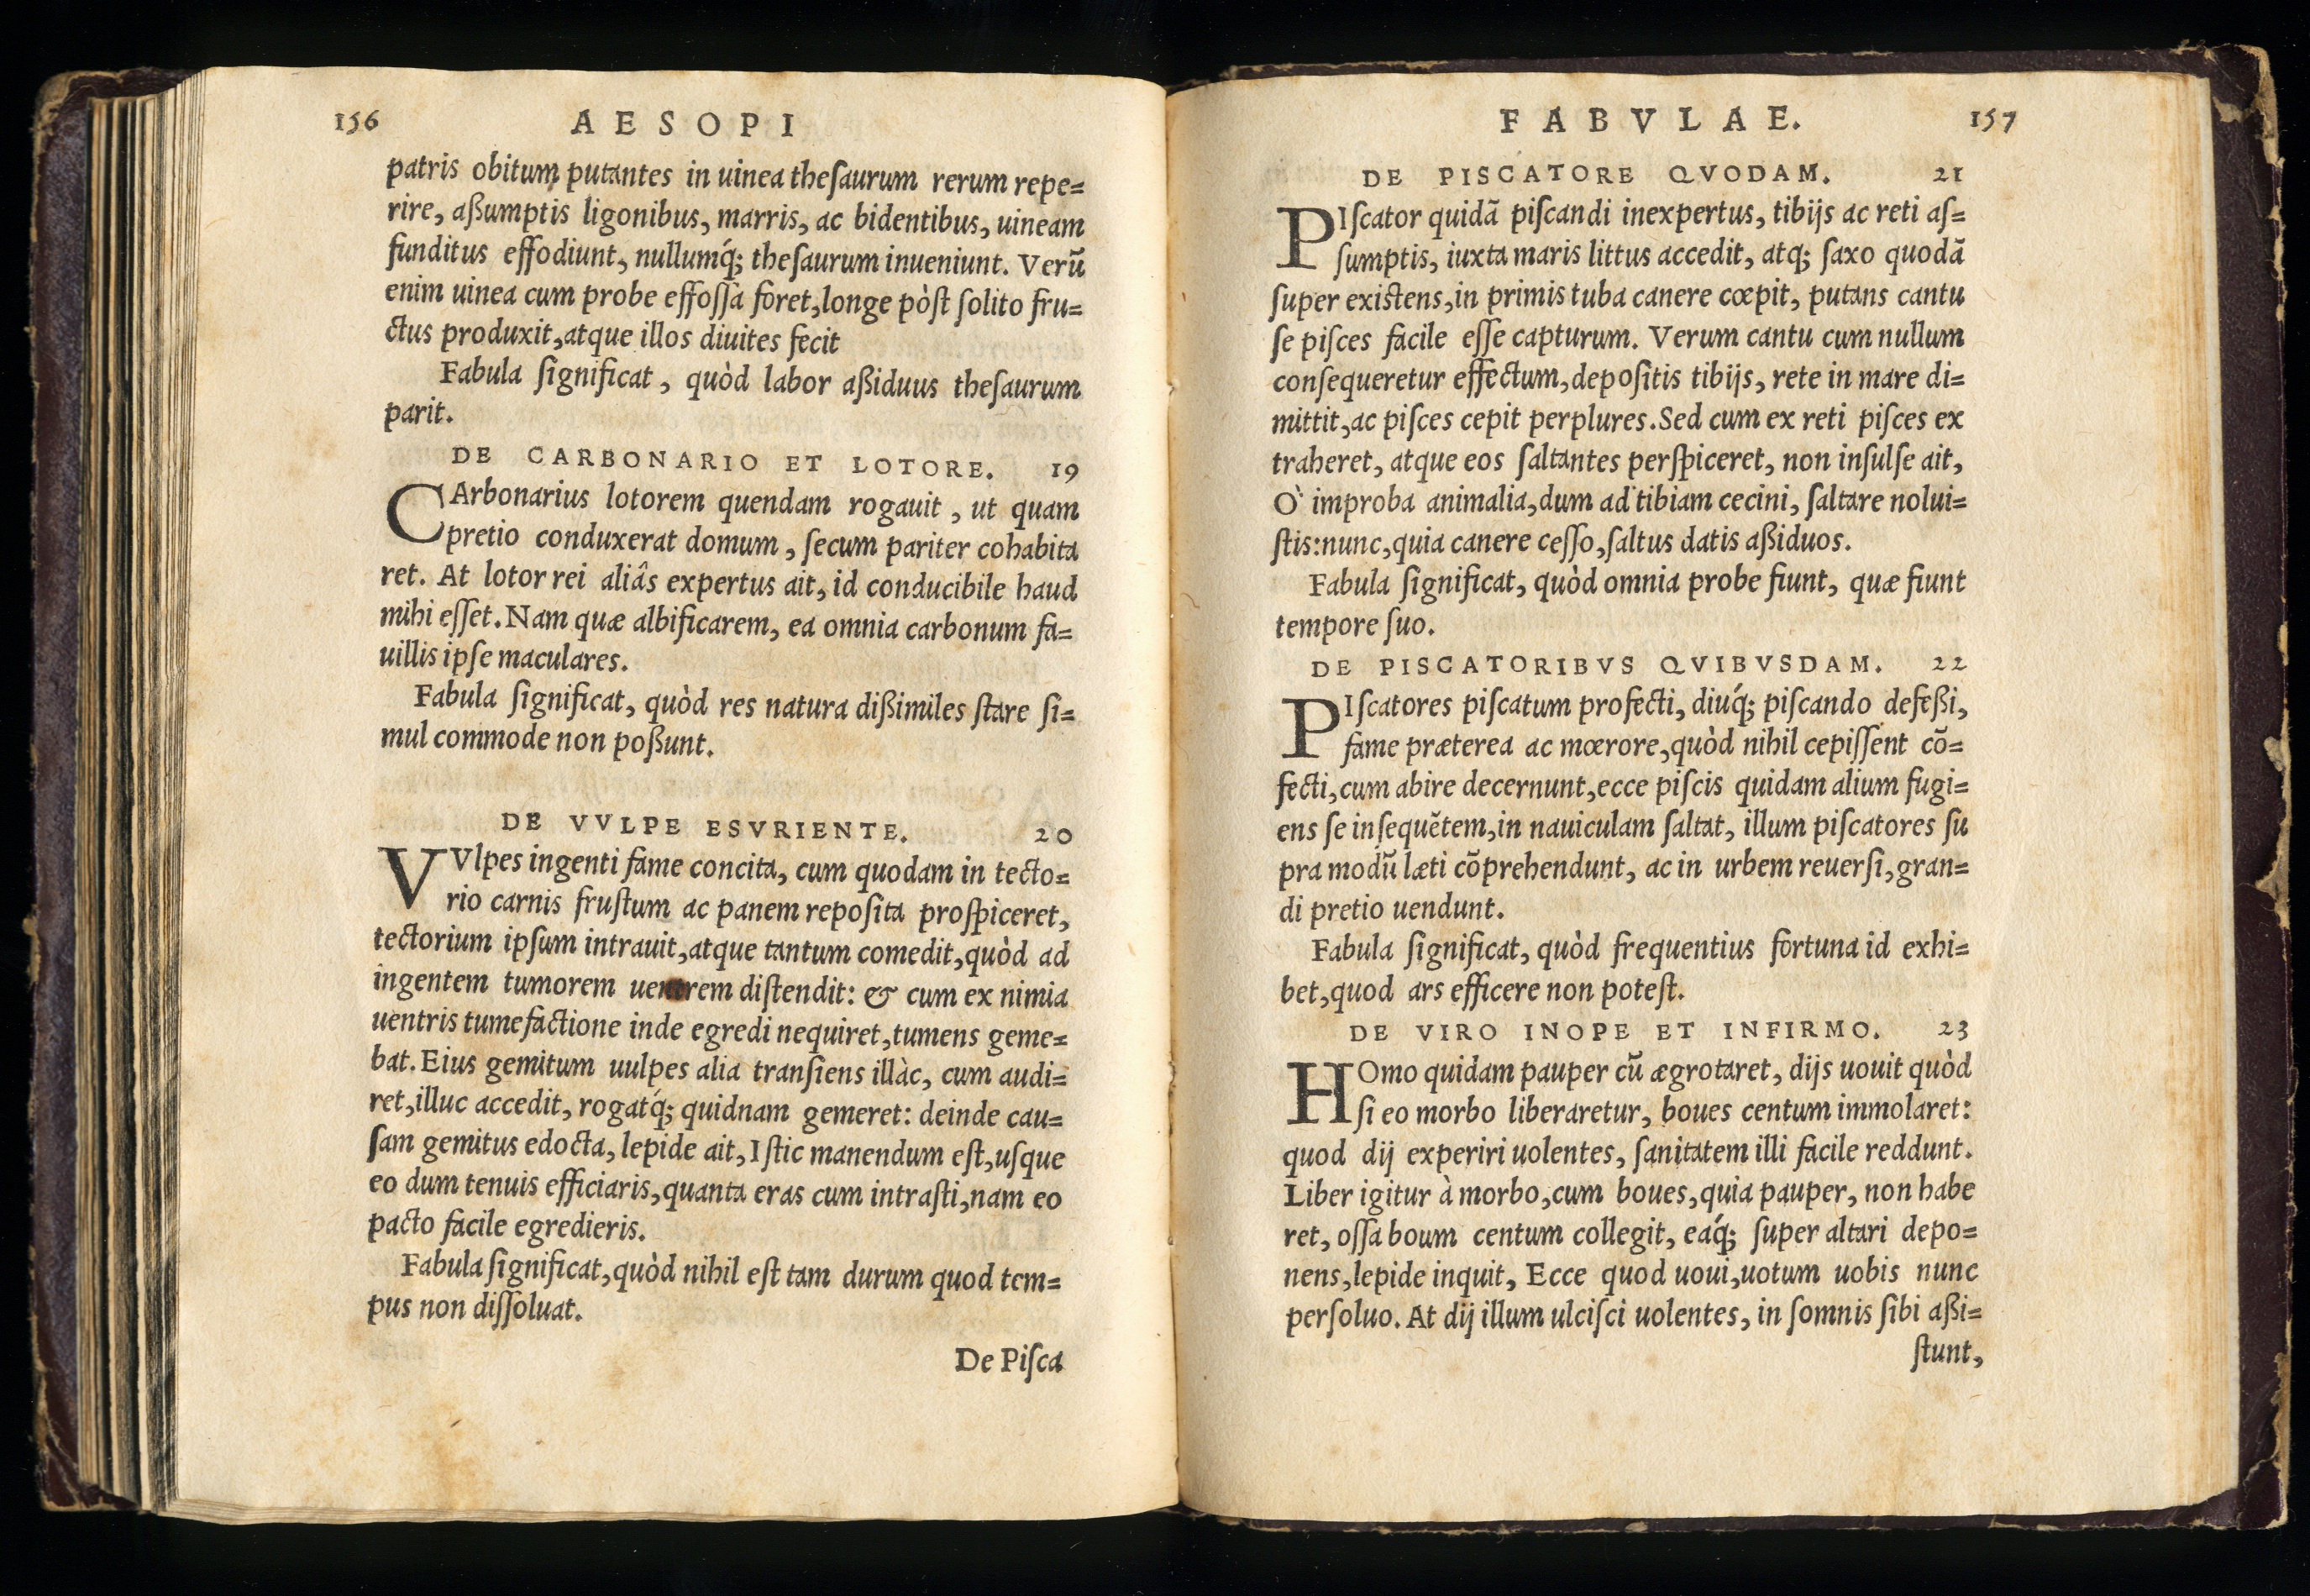 156 AESOPI
patris obitum putantes in uinea theſaurum rerum repe=
rire, aßumptis ligonibus, marris, ac bidentibus, uineam
funditus effodiunt, nullumq́; theſaurum inueniunt. Verū
enim uinea cum probe effoſſa foret, longe pòſt ſolito fru=
ctus produxit, atque illos diuites fecit
Fabula ſignificat, quòd labor aßiduus theſaurum
parit.
DE CARBONARIO ET LOTORE. 19
CArbonarius lotorem quendam rogauit, ut quam
pretio conduxerat domum, ſecum pariter cohabita
ret. At lotor rei aliâs expertus ait, id conducibile haud
mihi eſſet. Nam quæ albificarem, ea omnia carbonum fa=
uillis ipſe maculares.
Fabula ſignificat, quòd res natura dißimiles ſtare ſi=
mul commode non poßunt.
DE VVLPE ESVRIENTE. 20
VVlpes ingenti fame concita, cum quodam in tecto=
rio carnis fruſtum ac panem repoſita proſpiceret,
tectorium ipſum intrauit, atque tantum comedit, quòd ad
ingentem tumorem uentrem diſtendit: & cum ex nimia
uentris tumefactione inde egredi nequiret, tumens geme=
bat. Eius gemitum uulpes alia tranſiens illàc, cum audi=
ret, illuc accedit, rogatq́; quidnam gemeret: deinde cau=
ſam gemitus edocta, lepide ait, Iſtic manendum eſt, uſque
eo dum tenuis efficiaris, quanta eras cum intraſti, nam eo
pacto facile egredieris.
Fabula ſignificat, quòd nihil eſt tam durum quod tem=
pus non diſſoluat.
De Piſca
FABVLAE. 157
DE PISCATORE QVODAM. 21
PIſcator quidā piſcandi inexpertus, tibijs ac reti aſ=
ſumptis, iuxta maris littus accedit, atq; ſaxo quodā
ſuper existens, in primis tuba canere cœpit, putans cantu
ſe piſces facile eſſe capturum. Verum cantu cum nullum
conſequeretur effectum, depoſitis tibijs, rete in mare di=
mittit, ac piſces cepit perplures. Sed cum ex reti piſces ex
traheret, atque eos ſaltantes perſpiceret, non inſulſe ait,
Ò improba animalia, dum ad tibiam cecini, ſaltare nolui=
ſtis: nunc, quia canere ceſſo, ſaltus datis aßiduos.
Fabula ſignificat, quòd omnia probe fiunt, quæ fiunt
tempore ſuo.
DE PISCATORIBVS QVIBVSDAM. 22
PIſcatores piſcatum profecti, diuq́; piſcando defeßi,
fame præterea ac mœrore, quòd nihil cepiſſent cō=
fecti, cum abire decernunt, ecce piſcis quidam alium fugi=
ens ſe inſequētem, in nauiculam ſaltat, illum piſcatores ſu
pra modū læti cōprehendunt, ac in urbem reuerſi, gran=
di pretio uendunt.
Fabula ſignificat, quòd frequentius fortuna id exhi=
bet, quod ars efficere non poteſt.
DE VIRO INOPE ET INFIRMO. 23
HOmo quidam pauper cū ægrotaret, dijs uouit quòd
ſi eo morbo liberaretur, boues centum immolaret:
quod dij experiri uolentes, ſanitatem illi facile reddunt.
Liber igitur à morbo, cum boues, quia pauper, non habe
ret, oſſa boum centum collegit, eaq́; ſuper altari depo=
nens, lepide inquit, Ecce quod uoui, uotum uobis nunc
perſoluo. At dij illum ulciſci uolentes, in ſomnis ſibi aßi=
ſtunt,